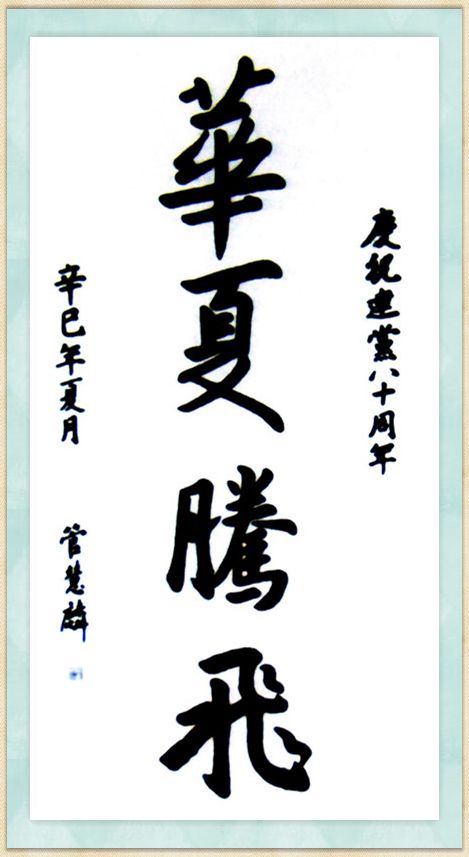 慶祝建黨八十周年
華夏騰飛
辛巳年夏月
管慧麟